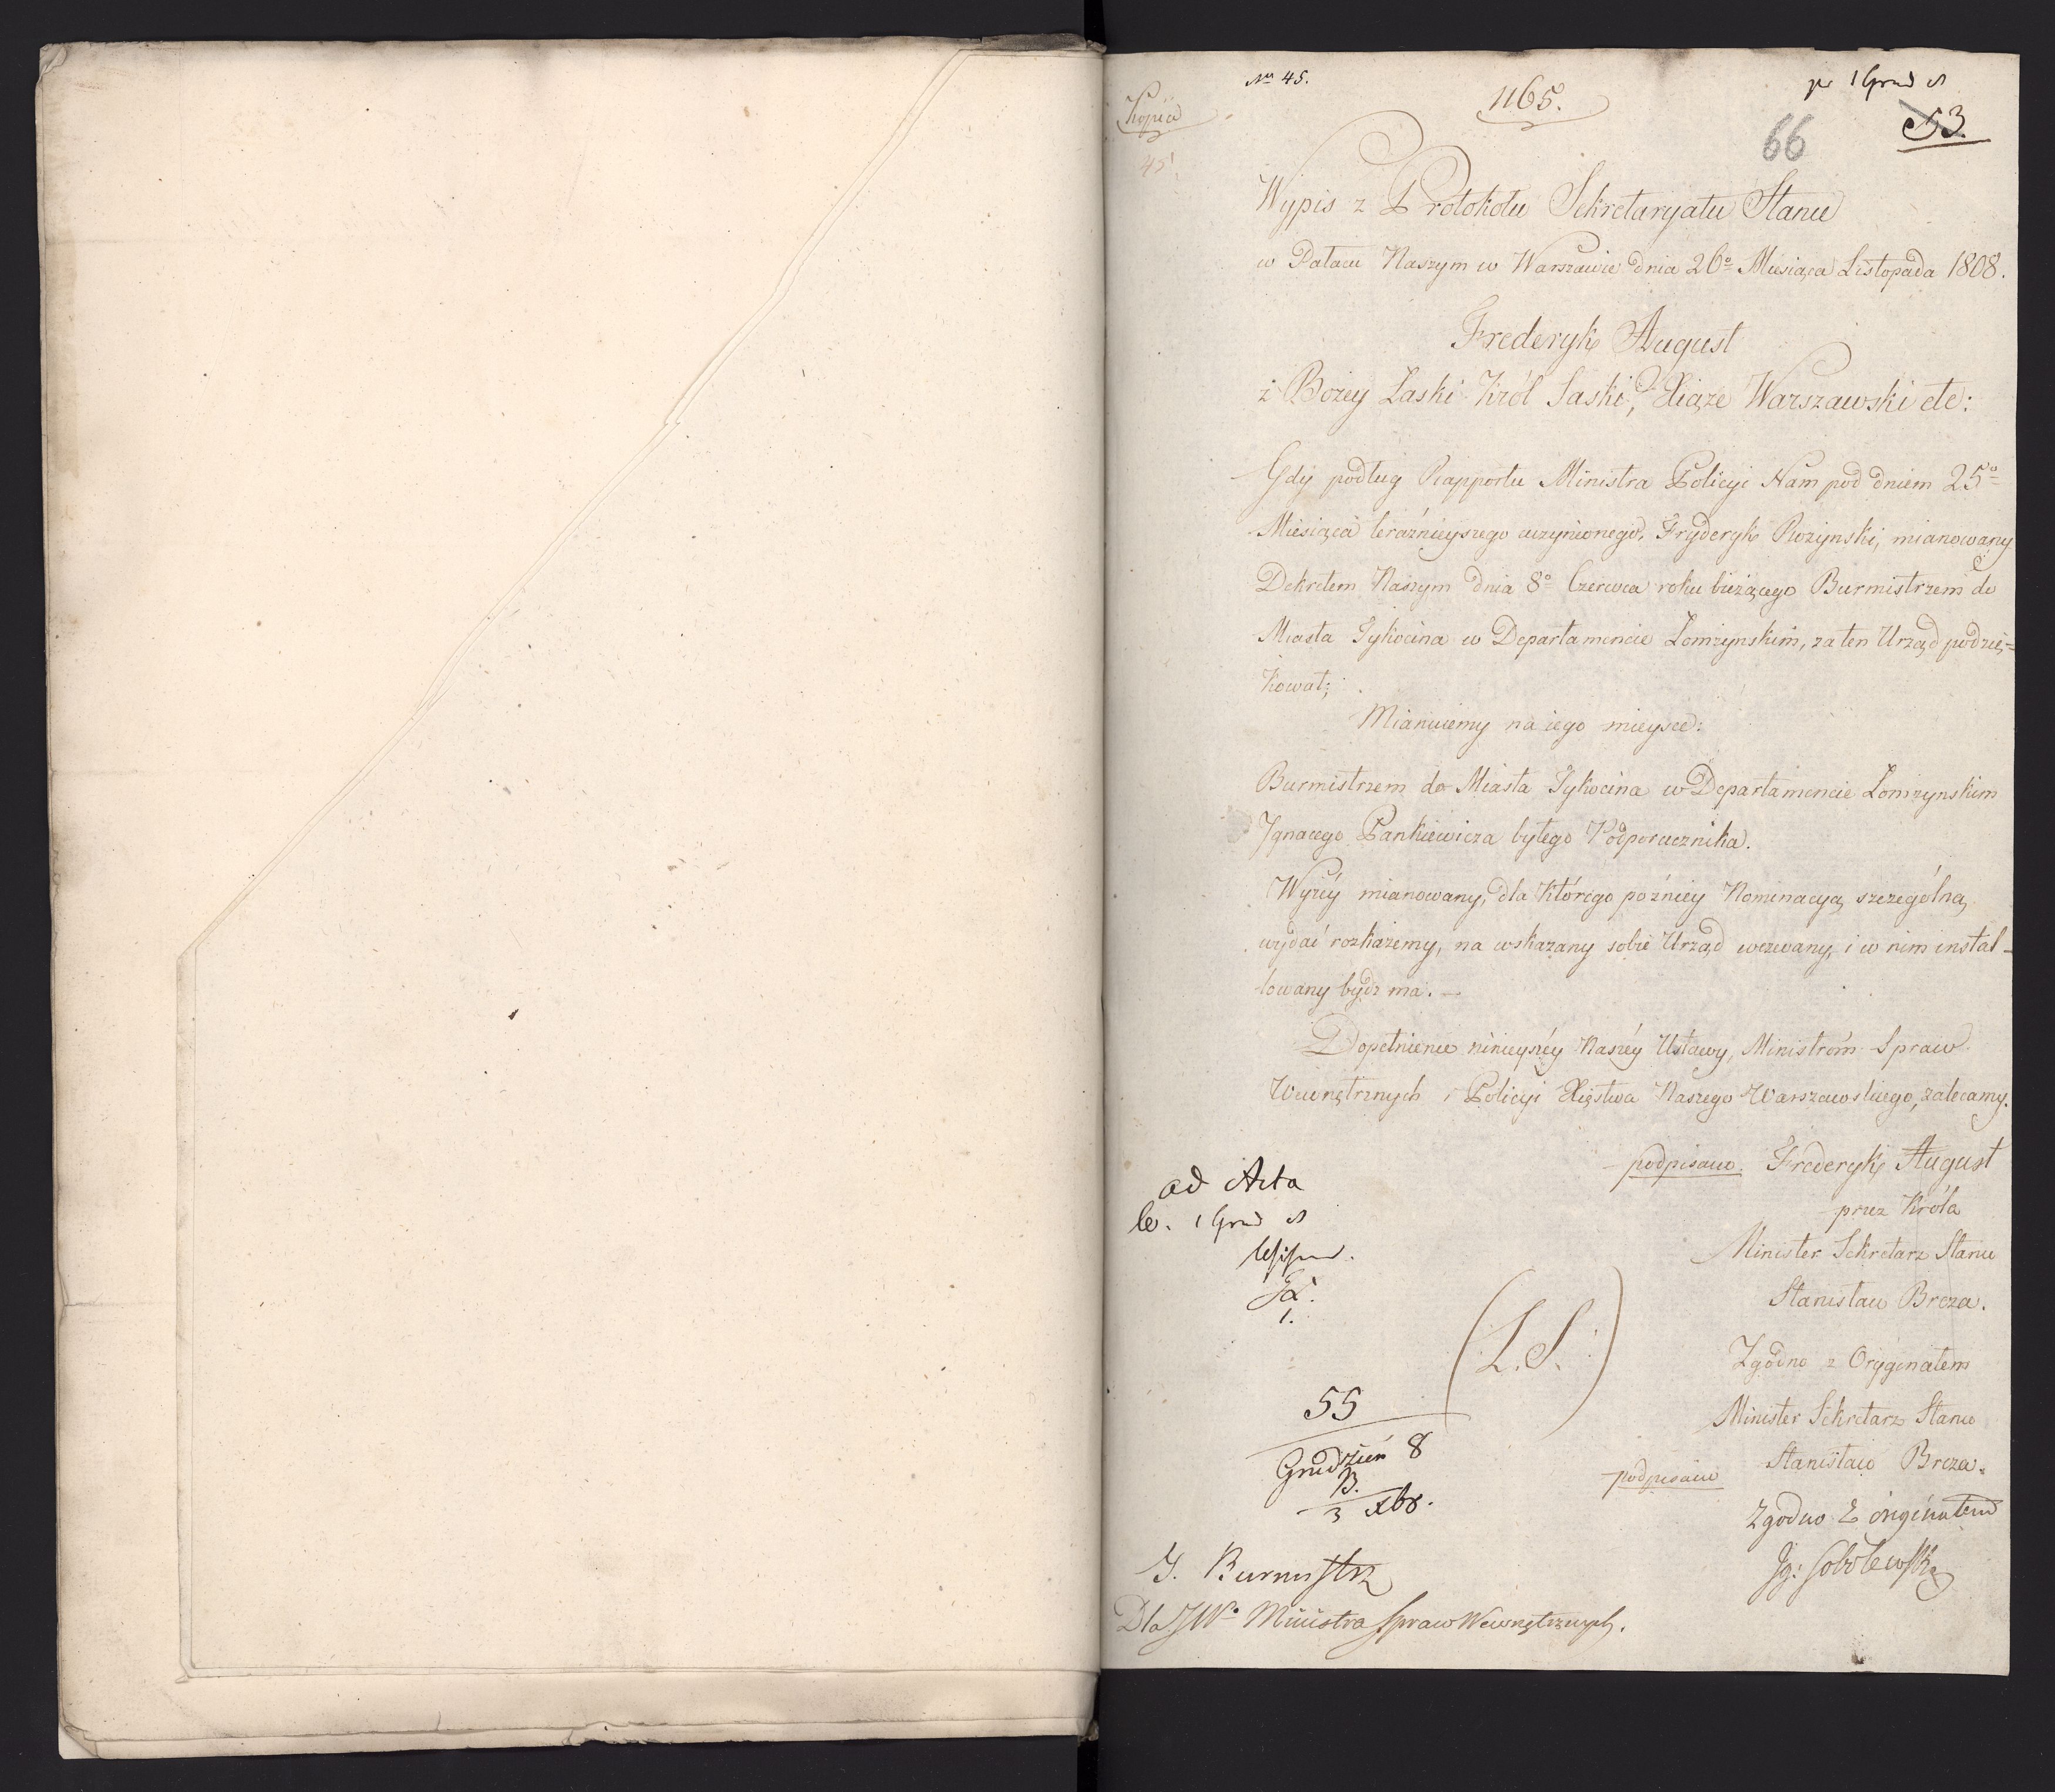 Nro 45.
1165.
pr 1 Grud 8
Kopia
53.
66
45
Wypis z Protokołu Sekretaryatu Stanu
w Pałacu Naszym w Warszawie dnia 26o Miesiąca Listopada 1808.
Frederyk August
z Bożey Łaski Król Saski, Xiąże Warszawski etc:
Gdy podług Rapportu Ministra Policyi Nam pod dniem 25o
Miesiąca teraźnieyszego uczynionego, Fryderyk Rożynski, mianowany
Dekretem Naszym dnia 8o Czerwca roku bieżącego Burmistrzem do
Miasta Tykocina w Departamencie Łomżynskim, za ten Urząd podzię=
kował;
Mianuiemy na iego mieysce:
Burmistrzem do Miasta Tykocina w Departamencie Łomżynskim
Ignacego Pankiewicza byłego Podporucznika.
Wyżéy mianowany, dla którego poźniey Nominacyą szczególną
wydać rozkażemy, na wskazany sobie Urząd wezwany, i w nim instal-
lowany bydź ma. -
Dopełnienie ninieyszéy Naszéy Ustawy, Ministrom Spraw
Wewnętrznych i Policyi Xięstwa Naszego Warszawskiego, zalecamy.
podpisano. Frederyk August
przez Króla
Minister Sekretarz Stanu
Stanisław Breza.
ad Acta
1 Grud 8
(L.S.)
Zgodno z Oryginałem
Minister Sekretarz Stanu
podpisano Stanisław Breza.
55
Grudzień 8
B.
3 xbr.
Zgodno z originałem
Ig: Sobolewski
J. Burmistrz
Dla JWo Ministra Spraw Wewnętrznych.